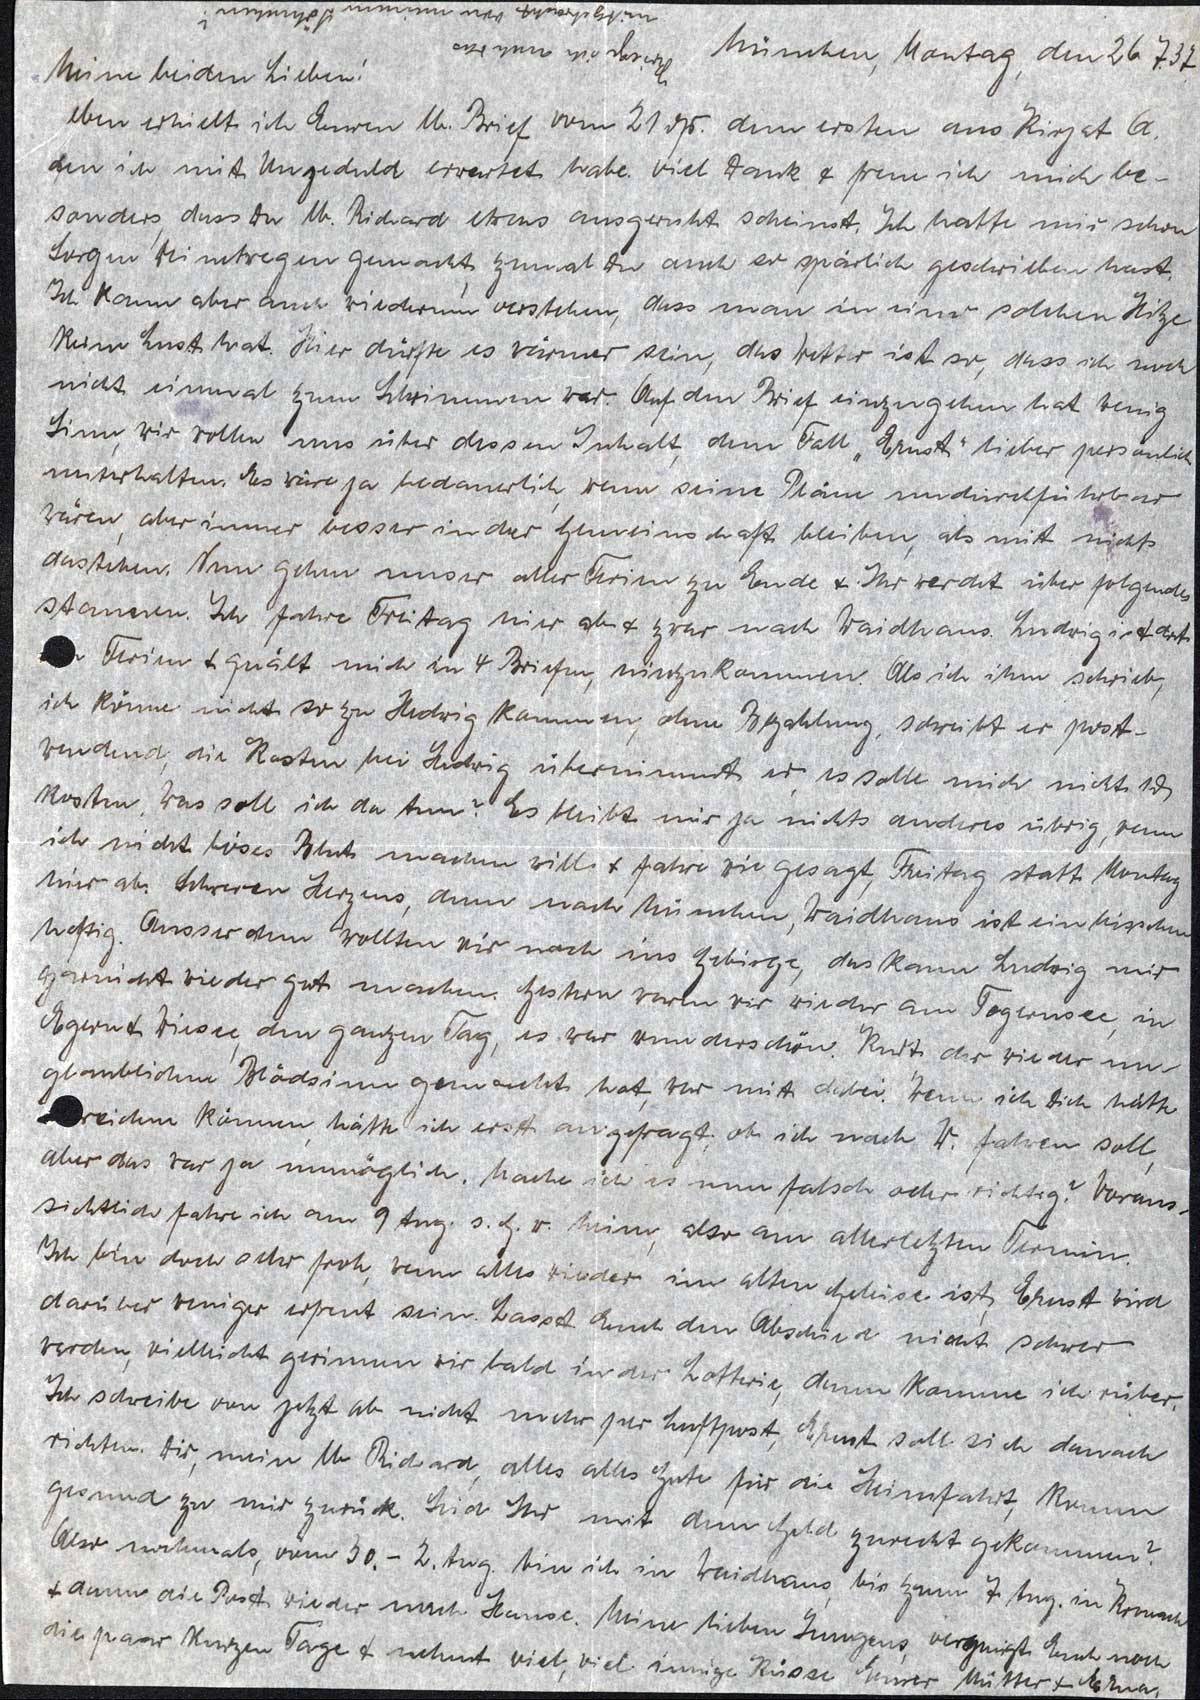 München, Montag, den 26.7.37
Meine beiden Lieben!
eben erhielt ich Euren lb. Brief vom 21 ds. den ersten aus Kirjat A.
den ich mit Ungeduld erwartet habe. Viel Dank & freue ich mich be-
sonders, dass Du lb. Richard etwas ausgeruht scheinst. Ich hatte mir schon
Sorgen Deinetwegen gemacht, zumal Du auch so spärlich geschrieben hast.
Ich kann aber auch wiederum verstehen, dass man in einer solchen Hitze
keine Lust hat. Hier dürfte es wärmer sein, das Wetter ist so, dass ich noch
nicht einmal zum Schwimmen war. Auf den Brief einzugehen hat wenig
Sinn, wir wollen uns über dessen Inhalt, dem Fall „Ernst" lieber persönlich
unterhalten. Es wäre ja bedauerlich, wenn seine Pläne undurchführbar
wären, aber immer besser in der Gemeinschaft bleiben, als mit nichts
dastehen. Nun gehen unser aller Ferien zu Ende & Ihr werdet über folgendes
staunen. Ich fahre Freitag hier ab & zwar nach Waidhaus. Ludwig ist dort
Ferien & quält mich in 4 Briefen, hinzukommen. Als ich ihm schrieb,
ich könne nicht so zu Hedwig kommen, ohne Bezahlung, schreibt er post-
wendend, die Kosten bei Hedwig übernimmt er, es solle mich nichts
kosten. Was soll ich da tun? Es bleibt mir ja nichts anderes übrig, wenn
ich nicht böses Blut machen will & fahre wie gesagt, Freitag statt Montag
hier ab. Schweren Herzens, denn nach München, Waidhaus ist ein bisschen
heftig. Ausserdem wollten wir noch ins Gebirge, das kann Ludwig mir
garnicht wieder gut machen. Gestern waren wir wieder am Tegernsee, in
Egern & Wiessee, den ganzen Tag, es war wunderschön. Kurt, der wieder un-
glaublichen Blödsinn gemacht hat, war mit dabei. Wenn ich Dich hätte
erreichen können, hätte ich erst angefragt, ob ich nach W. fahren soll,
aber das war ja unmöglich. Mache ich es nun falsch oder richtig? Voraus-
sichtlich fahre ich am 9 Aug. s. G. w. heim, also am allerletzten Termin.
Ich bin doch sehr froh, wenn alles wieder im alten Geleise ist, Ernst wird
darüber weniger erfreut sein. Lasst Euch den Abschied nicht schwer
werden, vielleicht gewinnen wir bald in der Lotterie, dann komme ich rüber.
Ich schreibe von jetzt ab nicht mehr per Luftpost, Ernst soll sich danach
richten. Dir, mein lb. Richard, alles alles Gute für die Heimfahrt, komm
gesund zu mir zurück. Seid Ihr mit dem Geld zurecht gekommen?
Also nochmals, vom 30. - 2. Aug. bin ich in Waidhaus, bis zum 7 Aug. in Kronach
& dann die Post wieder nach Hause. Meine lieben Jungens, vergnügt Euch noch
die paar kurzen Tage & nehmt viel, viel innige Küsse Eurer Mutter & Erna.
Bringst Du mir etwas
mitgebracht von meinem Söhnchen?